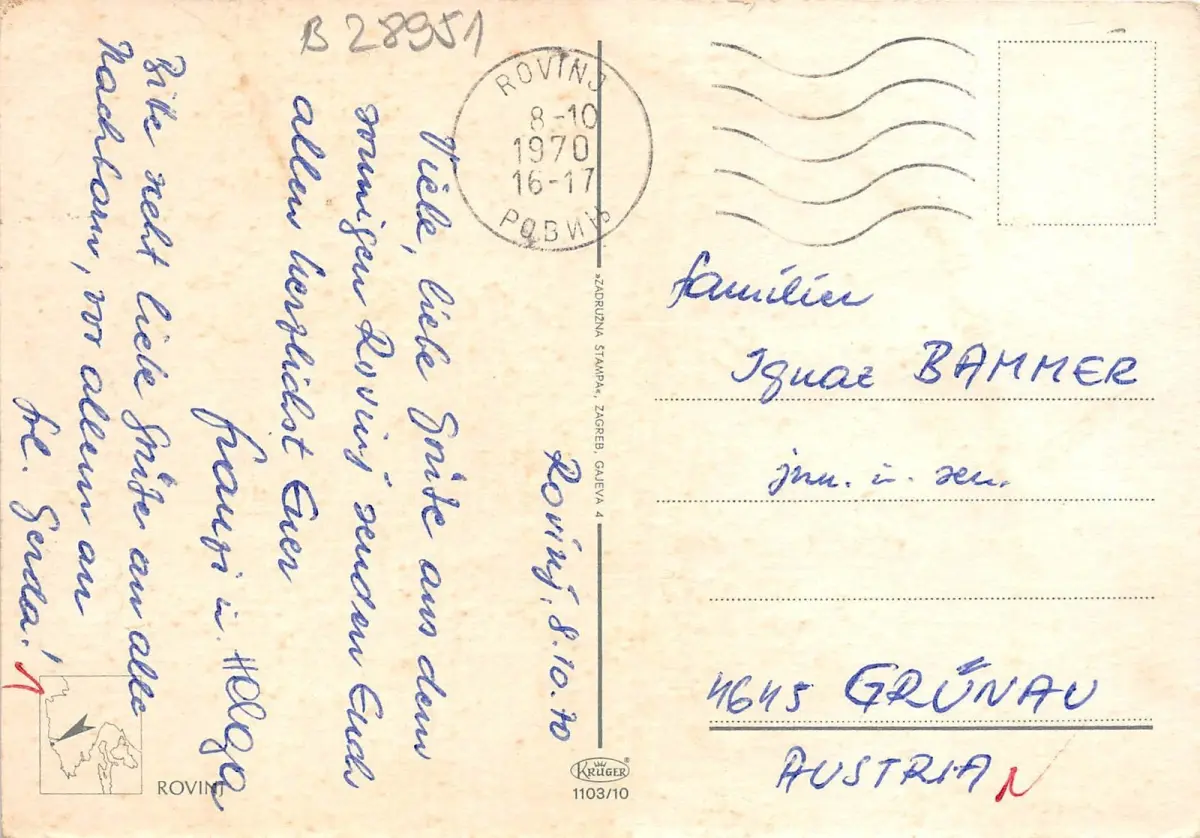 B 28951
ROVINJ
8-10
1970
16-17
РОВИЊ
Rovinj, 8.10.70
Viele, liebe Grüße aus dem
sonnigen Rovinj senden Euch
allen herzlichst Euer
Franzi u. Helga
Bitte recht liebe Grüße an alle
Nachbarn, vor allem an
Frl. Gerda!
»ZADRUŽNA ŠTAMPA«, ZAGREB, GAJEVA 4
Familien
Ignaz BAMMER
jun. u. sen.
4645 GRÜNAU
AUSTRIA
ROVINJ
KRÜGER
1103/10